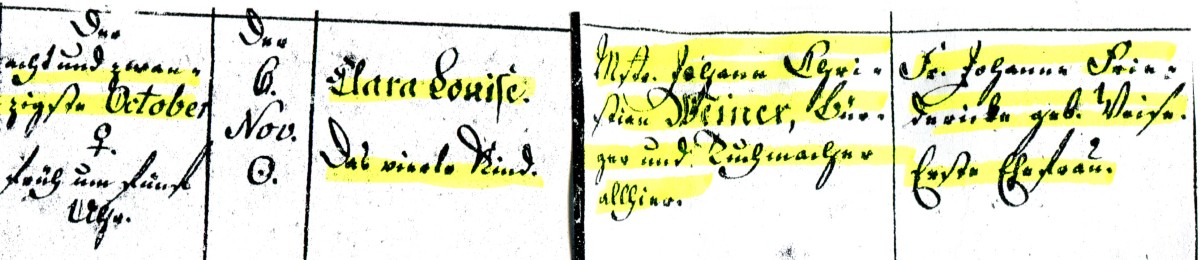 Der
acht und zwan-
zigste October
♀.
früh um fünf
Uhr.
Der
6.
Nov.
☉.
Clara Louise.
Das vierte Kind.
Mstr. Johann Chri-
stian Weiner, Bür-
ger und Tuchmacher
allhier.
Fr. Johanne Frie-
dericke geb. Weise.
Erste Ehefrau.